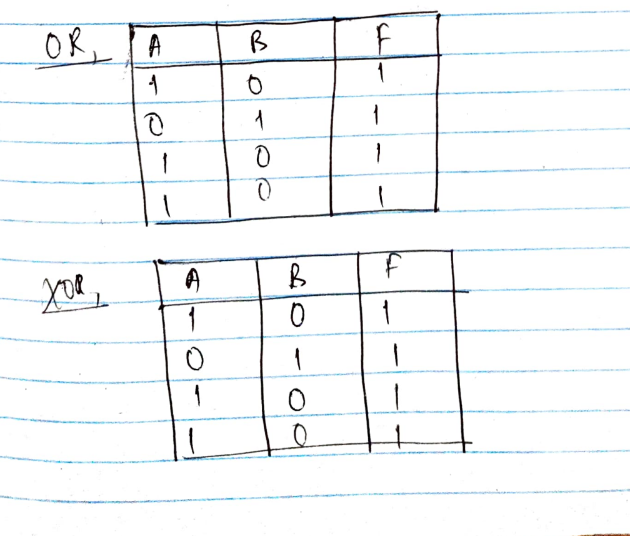 OR, A B F
1 0 1
0 1 1
1 0 1
1 0 1
XOR, A B F
1 0 1
0 1 1
1 0 1
1 0 1